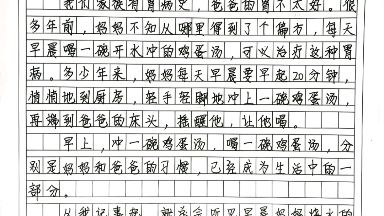 我们家族有胃病史，爸爸的胃不太好。很
多年前，妈妈不知从哪里得到了个偏方，每天
早晨喝一碗开水冲的鸡蛋汤，可以治疗这种胃
病。多少年来，妈妈每天早晨要早起20分钟，
悄悄地到厨房，轻手轻脚地冲上一碗鸡蛋汤，
再端到爸爸的床头，摇醒他，让他喝。
早上，冲一碗鸡蛋汤，喝一碗鸡蛋汤，分
别是妈妈和爸爸的习惯，已经成为生活中的一
部分。
从我记事起，就 听见早晨妈妈烧水的